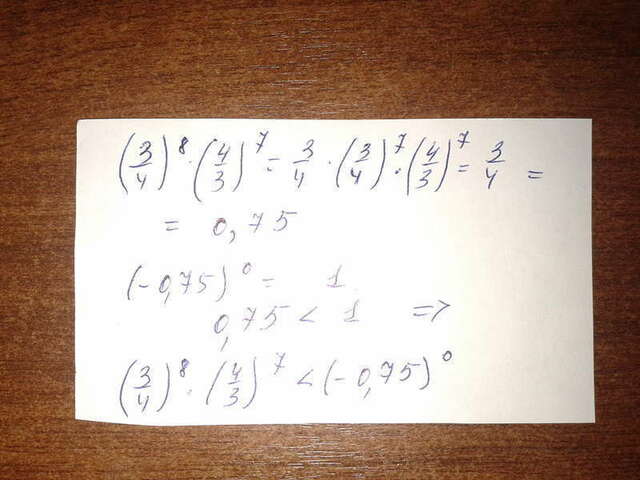 (3/4)^8 · (4/3)^7 = 3/4 · (3/4)^7 · (4/3)^7 = 3/4 =
= 0,75
(-0,75)^0 = 1
0,75 < 1 =>
(3/4)^8 · (4/3)^7 < (-0,75)^0